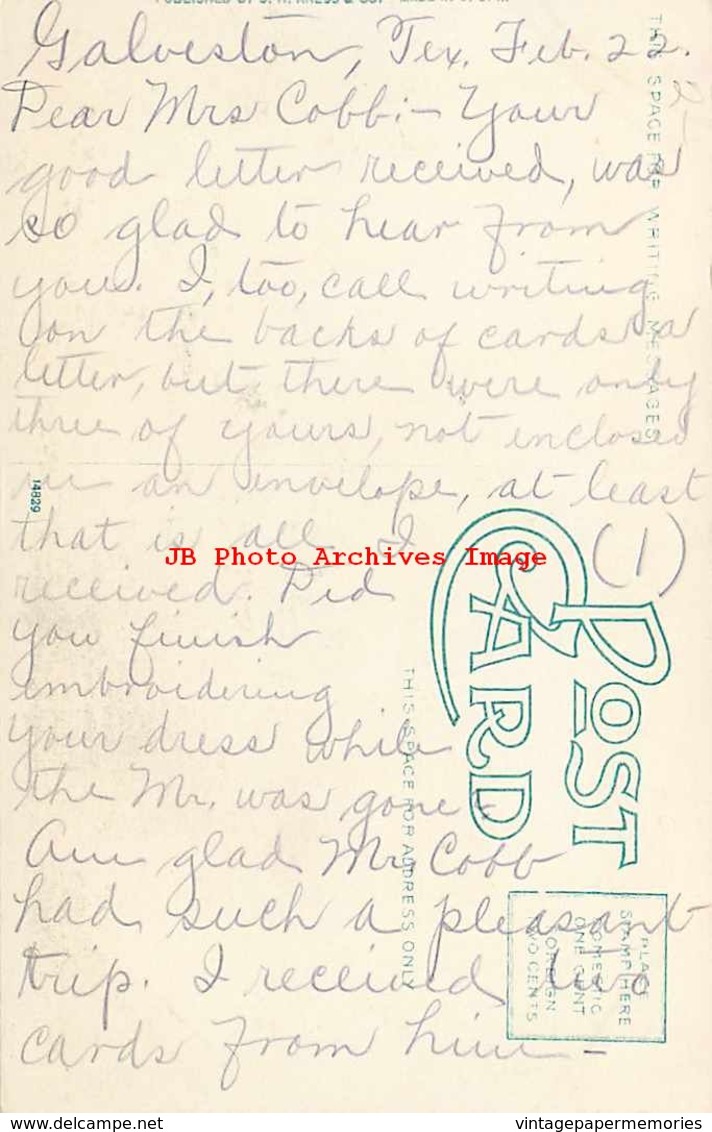 Galveston, Tex. Feb. 22.
Dear Mrs Cobb:- Your
good letter received, was
so glad to hear from
you. I, too, call writing
on the backs of cards a
letter, but there were only
three of yours, not inclosed
in an envelope, at least
that is all I (1)
received. Did
you finish
embroidering
your dress while
the Mr. was gone
Am glad Mr Cobb
had such a pleasant
trip. I received two
cards from him -
THIS SPACE FOR WRITING MESSAGES
14829
JB Photo Archives Image
POST
CARD
THIS SPACE FOR ADDRESS ONLY
PLACE
STAMP HERE
DOMESTIC
ONE CENT
FOREIGN
TWO CENTS
delcampe.net
vintagepapermemories